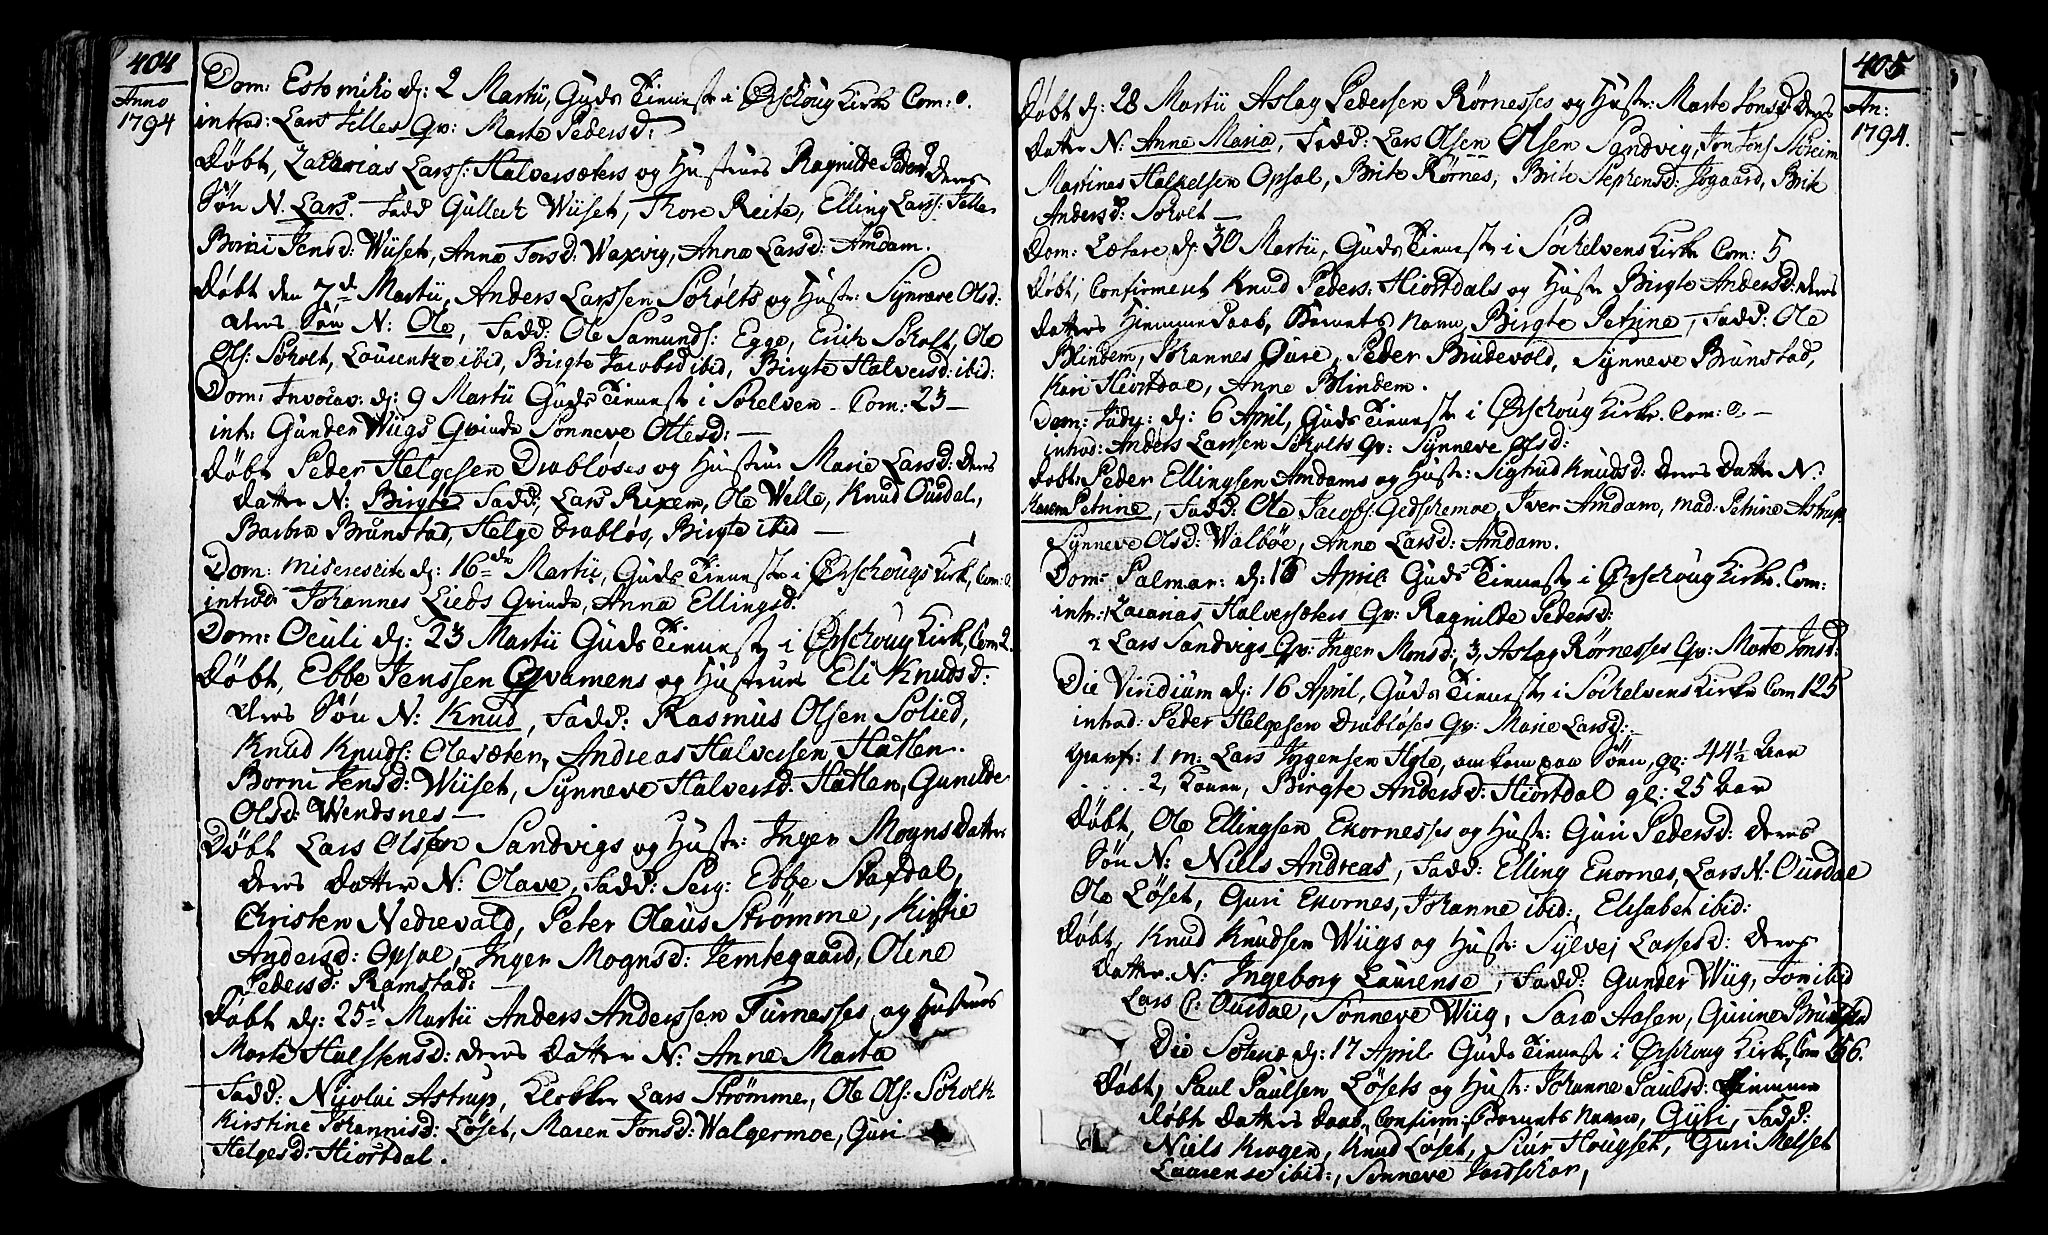 404
Anno
1794
Dom: Estomihi d: 2 Martii, Guds Tienneste i Ørschoug Kirke Com: 0.
introd: Lars Jelles Qv: Marte Pedersd:
Døbt, Zacharias Larss: Halversæters og Hustrues Ragnilde Pedersd: deres
Søn N. Lars. Fadd Gullech Wiiset, Thore Reite, Elling Larss: Jelle
Borni Jensd: Wiiset, Anna Torsd: Waxvig, Anna Larsd: Amdam.
Døbt den 7d Martii, Anders Larssen Søholts og Hustr: Synneve Olsd:
deres Søn N: Ole, Fadd: Ole Samunds: Egge, Erich Søholt, Ole
Ols: Søholt, Laurentze ibid, Birgte Jacobsd ibid, Birgte Halversd: ibid:
Dom: Invocav: d: 9 Martii Guds Tienneste i Søkelven - Com: 23 -
intr: Gunder Wiigs Qvinde Sønneve Ottesd: -
Døbt Peder Helgesen Drabløses og Hustrue Marie Larsd: deres
Datter N: Birgte Fadd: Lars Rixem, Ole Welle, Knud Ousdal,
Barbra Brunstad, Helge Drabløs, Birgte ibid -
Dom: miserescite d: 16de Martii, Guds Tienneste i Ørschougs Kirke, Com: 0
introd Johannes Lieds Qvinde, Anna Ellingsd:
Dom: Oculi d: 23 Martii Guds Tienneste i Ørschoug Kirke, Com: 2.
Døbt, Ebbe Jenssen Qvamens og Hustrue Eli Knudsd:
deres Søn N: Knud, Fadd: Rasmus Olsen Solied,
Knud Knuds: Olesæter, Andreas Halversen Hatlen.
Borni Jensd: Wiiset, Synneve Halversd: Hatlen, Gunilde
Olsd: Wendsnes -
Døbt Lars Olssen Sandvigs og Hustr: Inger Mogns Datter
deres Datter N: Olave, Fadd: Serg: Ebbe Stafdal,
Christen Nedrevald, Peter Olaus Strømme, Kirstie
Andersd: Opsal, Inger Mognsd: Jemtegaard, Oline
Pedersd: Ramstad: -
Døbt d: 25de Martii Anders Anderssen Furnesses og Hustrues
Marte Halstensd: deres Datter N: Anne Marta
Fadd: Nicolai Astrup, Klokker Lars Strømme, Ole Ols: Søholt
Kirstine Johannisd: Løset, Maren Jonsd: Walgermoe, Guri
Helgesd: Hiortdal.
405
An:
1794.
Døbt d: 28 Martii Aslag Pedersen Rørnesses og Hustr: Marte Jonsd: deres
Datter N: Anne Maria, Fadd: Lars Olsen Olsen Sandvig, Jon Jons Søheim
Martines Halkelsen Opsal, Brite Rørnes, Brite Stephensd: Jogaard, Brite
Andersd: Søholt -
Dom: Lætare d: 30 Martii, Guds Tienneste i Søckelvens Kirke Com: 5
Døbt, Confirmeret Knud Peders: Hiortdals og Hustr Birgte Andersd: deres
Datters Hiemme Daab, Barnets Navn, Birgte Petrine, Fadd: Ole
Blindem, Johannes Gure, Peder Brudevold, Synneve Brunstad,
Kari Hiortdal, Anne Blindem.
Dom: Judic: d: 6 April, Guds Tienneste i Ørschoug Kirke. Com: 0. -
introd: Anders Larssen Søholts Qv: Synneve Olsd:
Døbt: Peder Ellingsen Amdams og Hustr: Sigtrud Knudsd: deres Datter N:
Karen Petrine, Fadd: Ole Jacobs: Gedschemoe, Iver Amdam, Mad: Petrine Astrup
Synneve Olsd: Walbøe, Anne Larsd: Amdam.
Dom: Palmar: d: 13 April Guds Tienneste i Ørschoug Kirke. Com:
intr: Zacarias Halversæters Qv: Ragnilde Pedersd:
2 Lars Sandvigs Qv: Inger Monsd: 3, Aslag Rørnesses Qv: Marte Jonsd:
Die Viridium d: 16 April, Guds Tienneste i Søckelvens Kirke Com 125
introd: Peder Helgesen Drabløses Qv: Marie Larsd: -
Graef: 1 m: Lars Jørgensen Hole, omkom paa Søen, gl: 44½ Aar
2, Konen, Birgte Andersd: Hiortdal gl: 25 Aar
Døbt, Ole Ellingsen Ekornesses og Hustr: Guri Pedersd: deres
Søn N: Niels Andreas, Fadd: Elling Ekornes, Lars N: Ousdal
Ole Løset, Guri Ekornes, Johanne ibid:, Elisabet ibid:
Døbt, Knud Knudsen Wiigs og Hustr: Sylvej Lassesd: deres
Datter N: Ingeborg Laurense, Fadd: Gunder Wiig, Jon ibid
Lars C: Ousdal, Sonneve Wiig, Sara Aasen, Gurine Brunstad
Die Solenis d: 17 April Guds Tienneste i Ørschoug Kirke, Com 56.
Døbt, Paul Paulsen Løsets og Hustr: Johanne Paulsd: Hiemme
døbt Datters Daab, Confirm: Barnets Navn, Gyri, Fadd:
Niels Krogen, Knud Løset, Siur Hougset, Guri Melset
Laurense ibid:, Sonneve Jordschar,